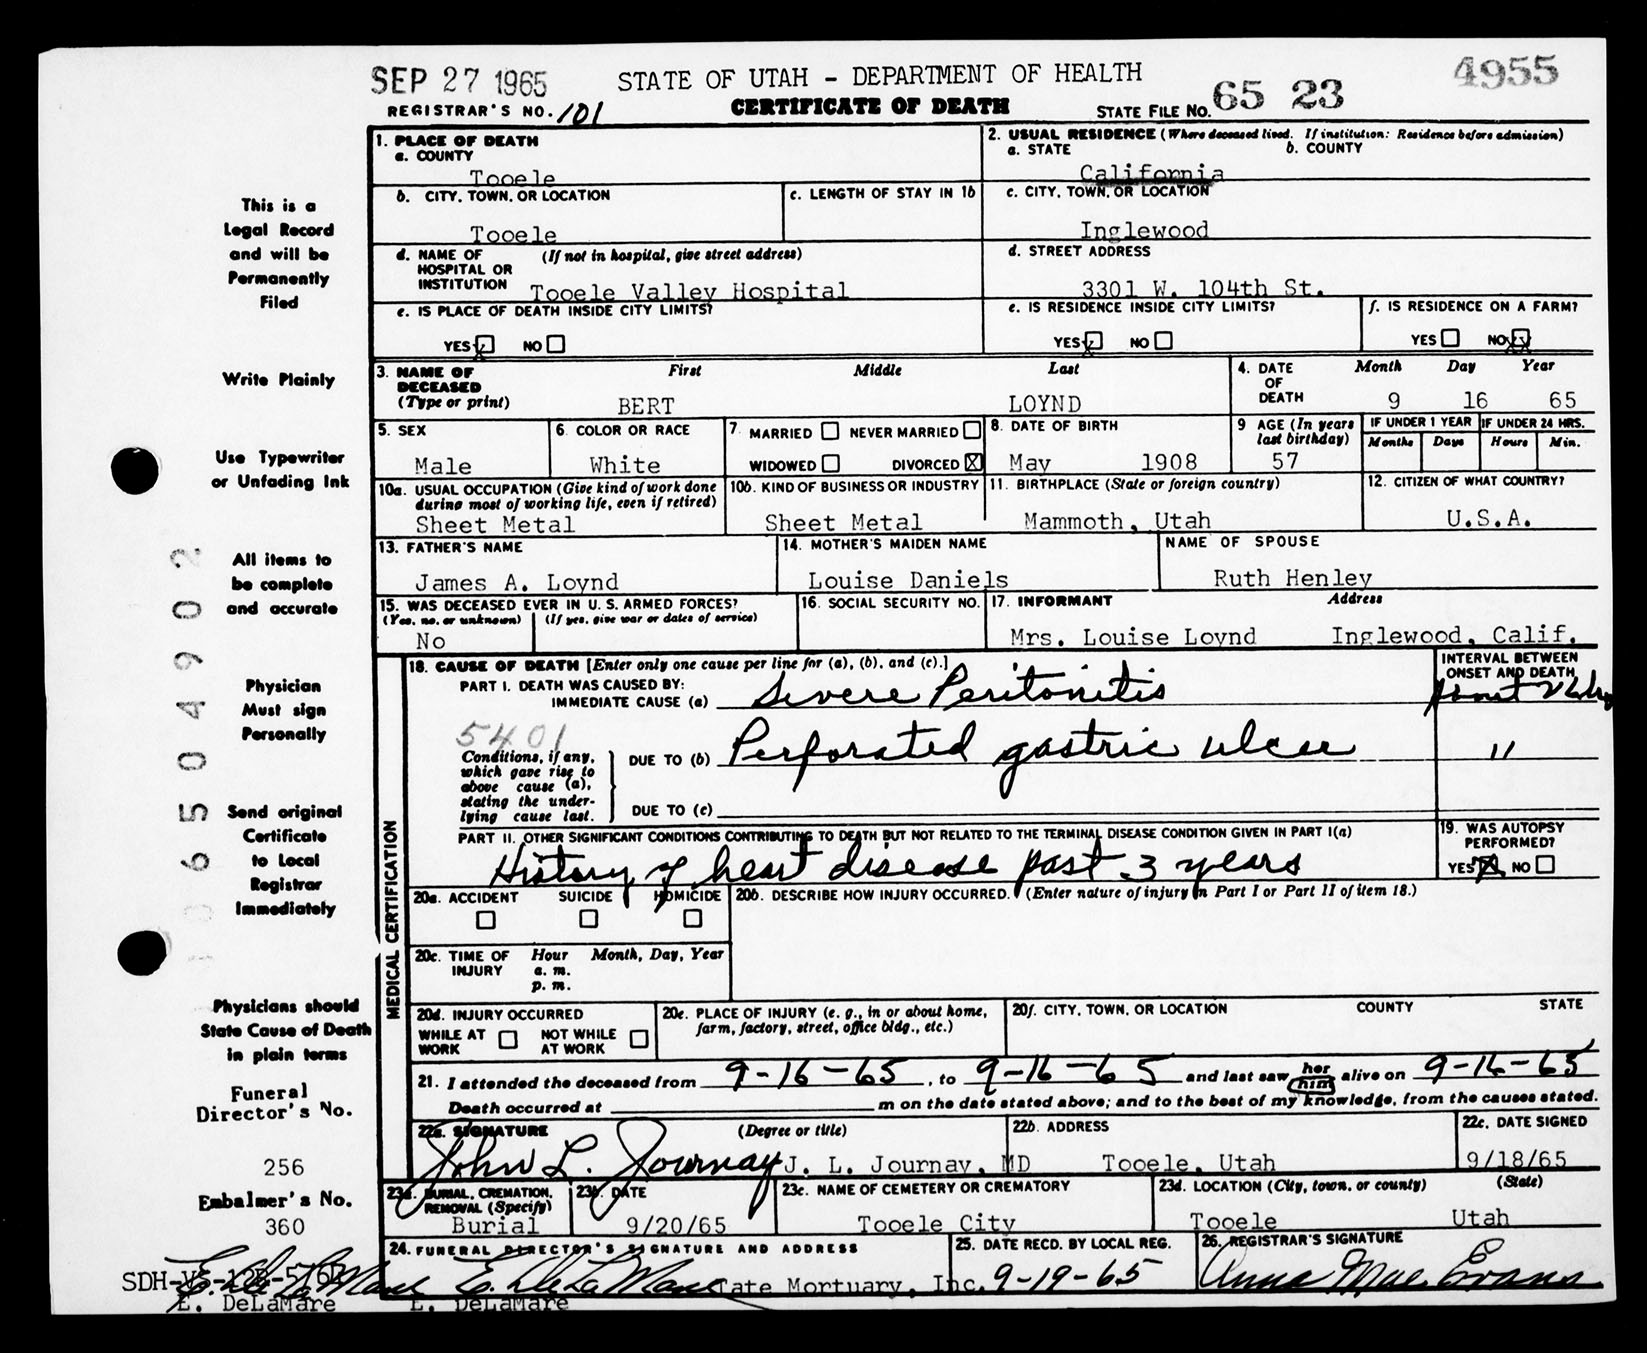 SEP 27 1965 STATE OF UTAH - DEPARTMENT OF HEALTH 4955
REGISTRAR'S NO. 101 CERTIFICATE OF DEATH STATE FILE NO. 65 23
1. PLACE OF DEATH
a. COUNTY
Tooele
2. USUAL RESIDENCE (Where deceased lived. If institution: Residence before admission)
a. STATE b. COUNTY
California
b. CITY, TOWN, OR LOCATION
Tooele
c. LENGTH OF STAY IN 1b
c. CITY, TOWN, OR LOCATION
Inglewood
d. NAME OF (If not in hospital, give street address)
HOSPITAL OR
INSTITUTION Tooele Valley Hospital
d. STREET ADDRESS
3301 W. 104th St.
e. IS PLACE OF DEATH INSIDE CITY LIMITS?
YES X NO
e. IS RESIDENCE INSIDE CITY LIMITS?
YES X NO
f. IS RESIDENCE ON A FARM?
YES NO XX
3. NAME OF First Middle Last
DECEASED
(Type or print) BERT LOYND
4. DATE Month Day Year
OF
DEATH 9 16 65
5. SEX
Male
6. COLOR OR RACE
White
7. MARRIED NEVER MARRIED
WIDOWED DIVORCED X
8. DATE OF BIRTH
May 1908
9 AGE (In years
last birthday)
57
IF UNDER 1 YEAR IF UNDER 24 HRS.
Months Days Hours Min.
10a. USUAL OCCUPATION (Give kind of work done
during most of working life, even if retired)
Sheet Metal
10b. KIND OF BUSINESS OR INDUSTRY
Sheet Metal
11. BIRTHPLACE (State or foreign country)
Mammoth, Utah
12. CITIZEN OF WHAT COUNTRY?
U.S.A.
13. FATHER'S NAME
James A. Loynd
14. MOTHER'S MAIDEN NAME
Louise Daniels
NAME OF SPOUSE
Ruth Henley
15. WAS DECEASED EVER IN U. S. ARMED FORCES?
(Yes, no, or unknown) (If yes, give war or dates of service)
No
16. SOCIAL SECURITY NO.
17. INFORMANT Address
Mrs. Louise Loynd Inglewood, Calif.
MEDICAL CERTIFICATION
18. CAUSE OF DEATH [Enter only one cause per line for (a), (b), and (c).]
PART I. DEATH WAS CAUSED BY:
IMMEDIATE CAUSE (a) Severe Peritonitis
INTERVAL BETWEEN
ONSET AND DEATH
5401
Conditions, if any,
which gave rise to
above cause (a),
stating the under-
lying cause last.
DUE TO (b) Perforated gastric ulcer "
DUE TO (c)
PART II. OTHER SIGNIFICANT CONDITIONS CONTRIBUTING TO DEATH BUT NOT RELATED TO THE TERMINAL DISEASE CONDITION GIVEN IN PART I(a)
History of heart disease past 3 years
19. WAS AUTOPSY
PERFORMED?
YES X NO
20a. ACCIDENT SUICIDE HOMICIDE
20b. DESCRIBE HOW INJURY OCCURRED. (Enter nature of injury in Part I or Part II of item 18.)
20c. TIME OF Hour Month, Day, Year
INJURY a. m.
p. m.
20d. INJURY OCCURRED
WHILE AT NOT WHILE
WORK AT WORK
20e. PLACE OF INJURY (e. g., in or about home,
farm, factory, street, office bldg., etc.)
20f. CITY, TOWN, OR LOCATION COUNTY STATE
21. I attended the deceased from 9-16-65, to 9-16-65 and last saw her him alive on 9-16-65
Death occurred at m on the date stated above; and to the best of my knowledge, from the causes stated.
22a. SIGNATURE (Degree or title)
John L. Journay J. L. Journay, MD
22b. ADDRESS
Tooele, Utah
22c. DATE SIGNED
9/18/65
23a. BURIAL, CREMATION,
REMOVAL (Specify)
Burial
23b. DATE
9/20/65
23c. NAME OF CEMETERY OR CREMATORY
Tooele City
23d. LOCATION (City, town, or county) (State)
Tooele Utah
24. FUNERAL DIRECTOR'S SIGNATURE AND ADDRESS
E. DeLaMare Tate Mortuary, Inc.
E. DeLaMare
25. DATE RECD. BY LOCAL REG.
9-19-65
26. REGISTRAR'S SIGNATURE
Anna Mae Evans
This is a
Legal Record
and will be
Permanently
Filed
Write Plainly
Use Typewriter
or Unfading Ink
All items to
be complete
and accurate
Physician
Must sign
Personally
Send original
Certificate
to Local
Registrar
Immediately
Physicians should
State Cause of Death
in plain terms
Funeral
Director's No.
256
Embalmer's No.
360
E. DeLaMare
E. DeLaMare
6504902